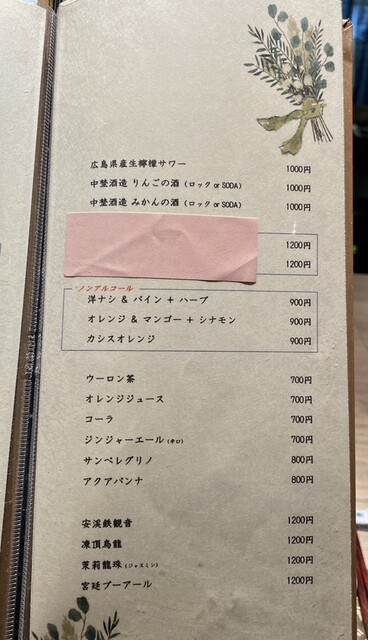 広島県産生檸檬サワー 1000円
中埜酒造 りんごの酒 (ロック or SODA) 1000円
中埜酒造 みかんの酒 (ロック or SODA) 1000円
1200円
1200円
ノンアルコール
洋ナシ & パイン + ハーブ 900円
オレンジ & マンゴー + シナモン 900円
カシスオレンジ 900円
ウーロン茶 700円
オレンジジュース 700円
コーラ 700円
ジンジャーエール (辛口) 700円
サンペレグリノ 800円
アクアパンナ 800円
安渓鉄観音 1200円
凍頂烏龍 1200円
茉莉龍珠 (ジャスミン) 1200円
宮廷プーアール 1200円